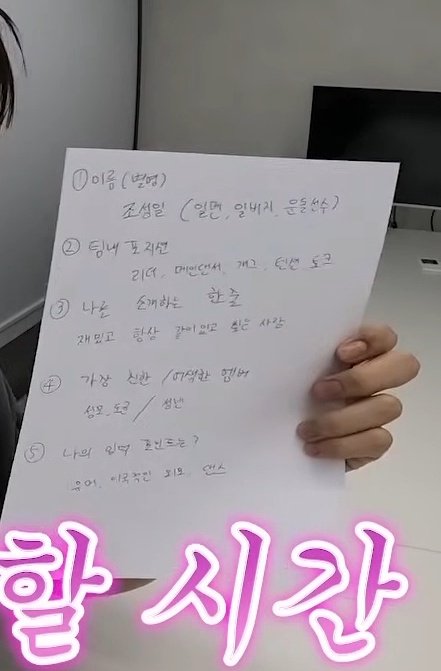 ① 이름 (별명)
조성일 (일편, 일버지, 운동선수)
② 팀내 포지션
리더, 메인댄서, 개그, 텐션 토크
③ 나를 소개하는 한줄
재밌고 항상 같이 있고 싶은 사람
④ 가장 친한 / 어색한 멤버
성모, 도크 /
⑤ 나의 입덕 포인트는?
유머, 이국적인 외모, 댄스
할 시간